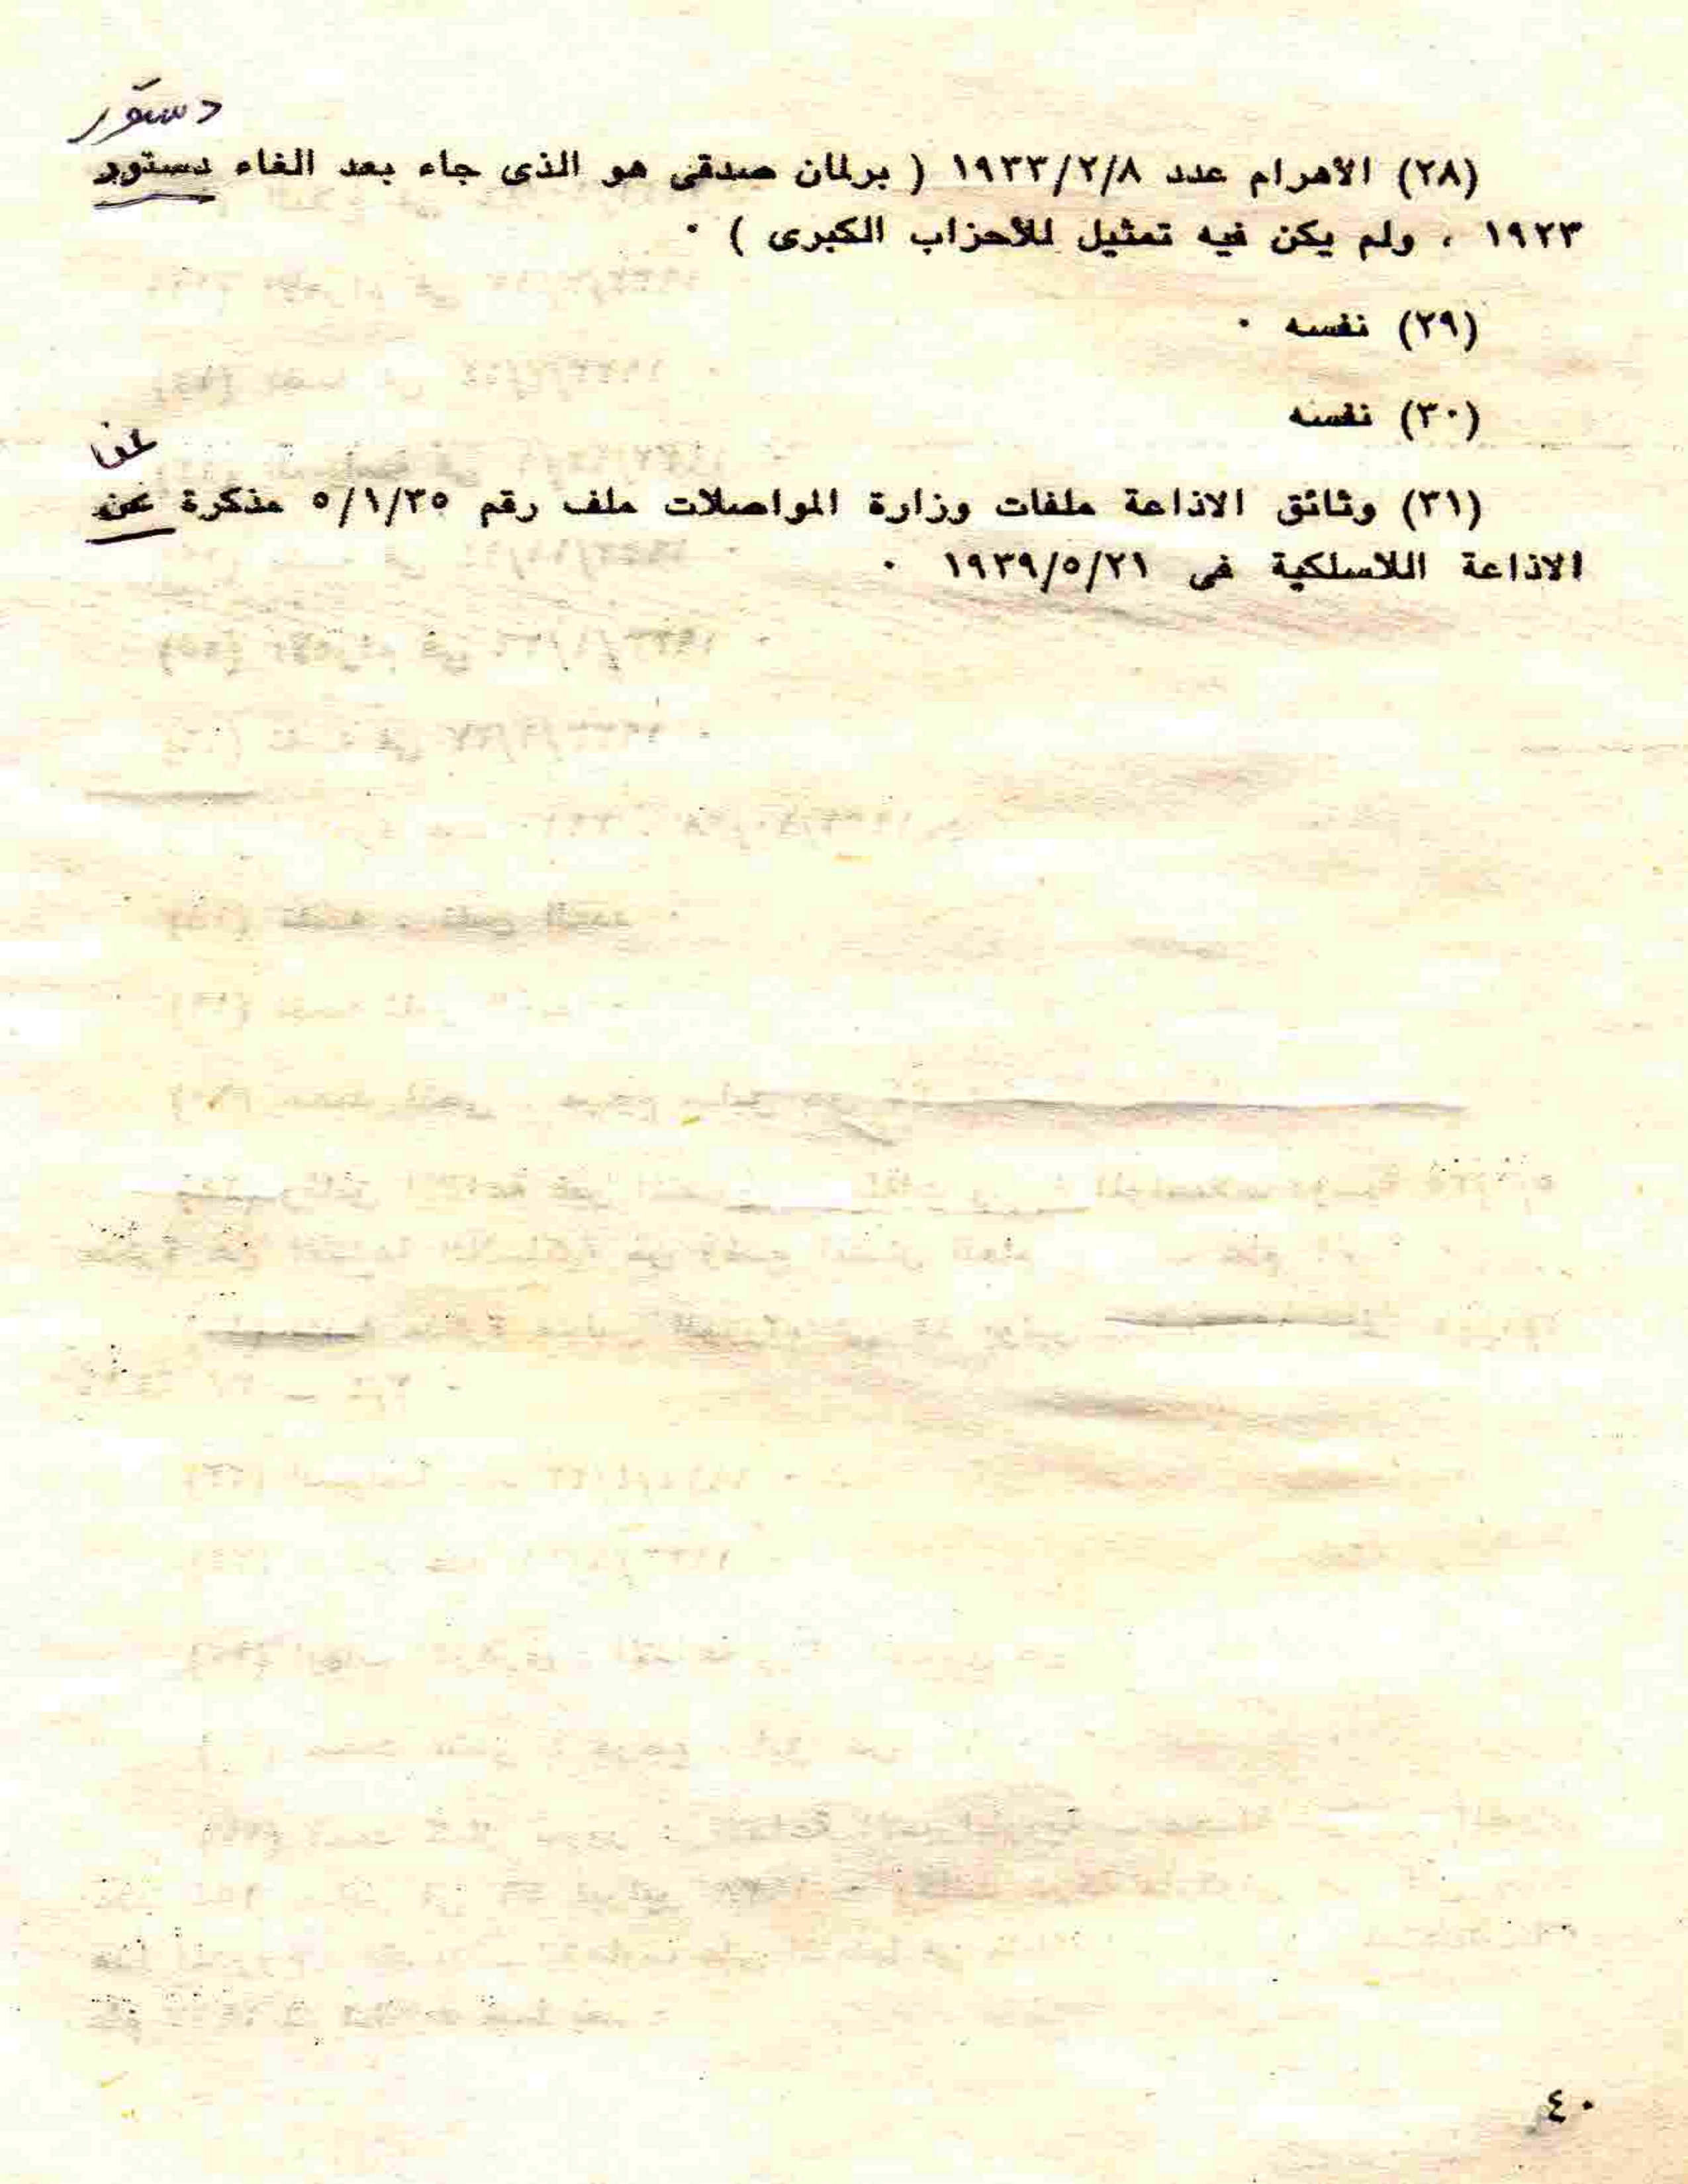 دستور
(٢٨) الاهرام عدد ١٩٣٣/٢/٨ ( برلمان صدقى هو الذى جاء بعد الغاء دستور
١٩٢٣ ، ولم يكن فيه تمثيل للأحزاب الكبرى ) ٠
(٢٩) نفسه ٠
(٣٠) نفسه
عن
(٣١) وثائق الاذاعة ملفات وزارة المواصلات ملف رقم ٥/١/٣٥ مذكرة عن
الاذاعة اللاسلكية فى ١٩٣٩/٥/٢١ ٠
٤٠